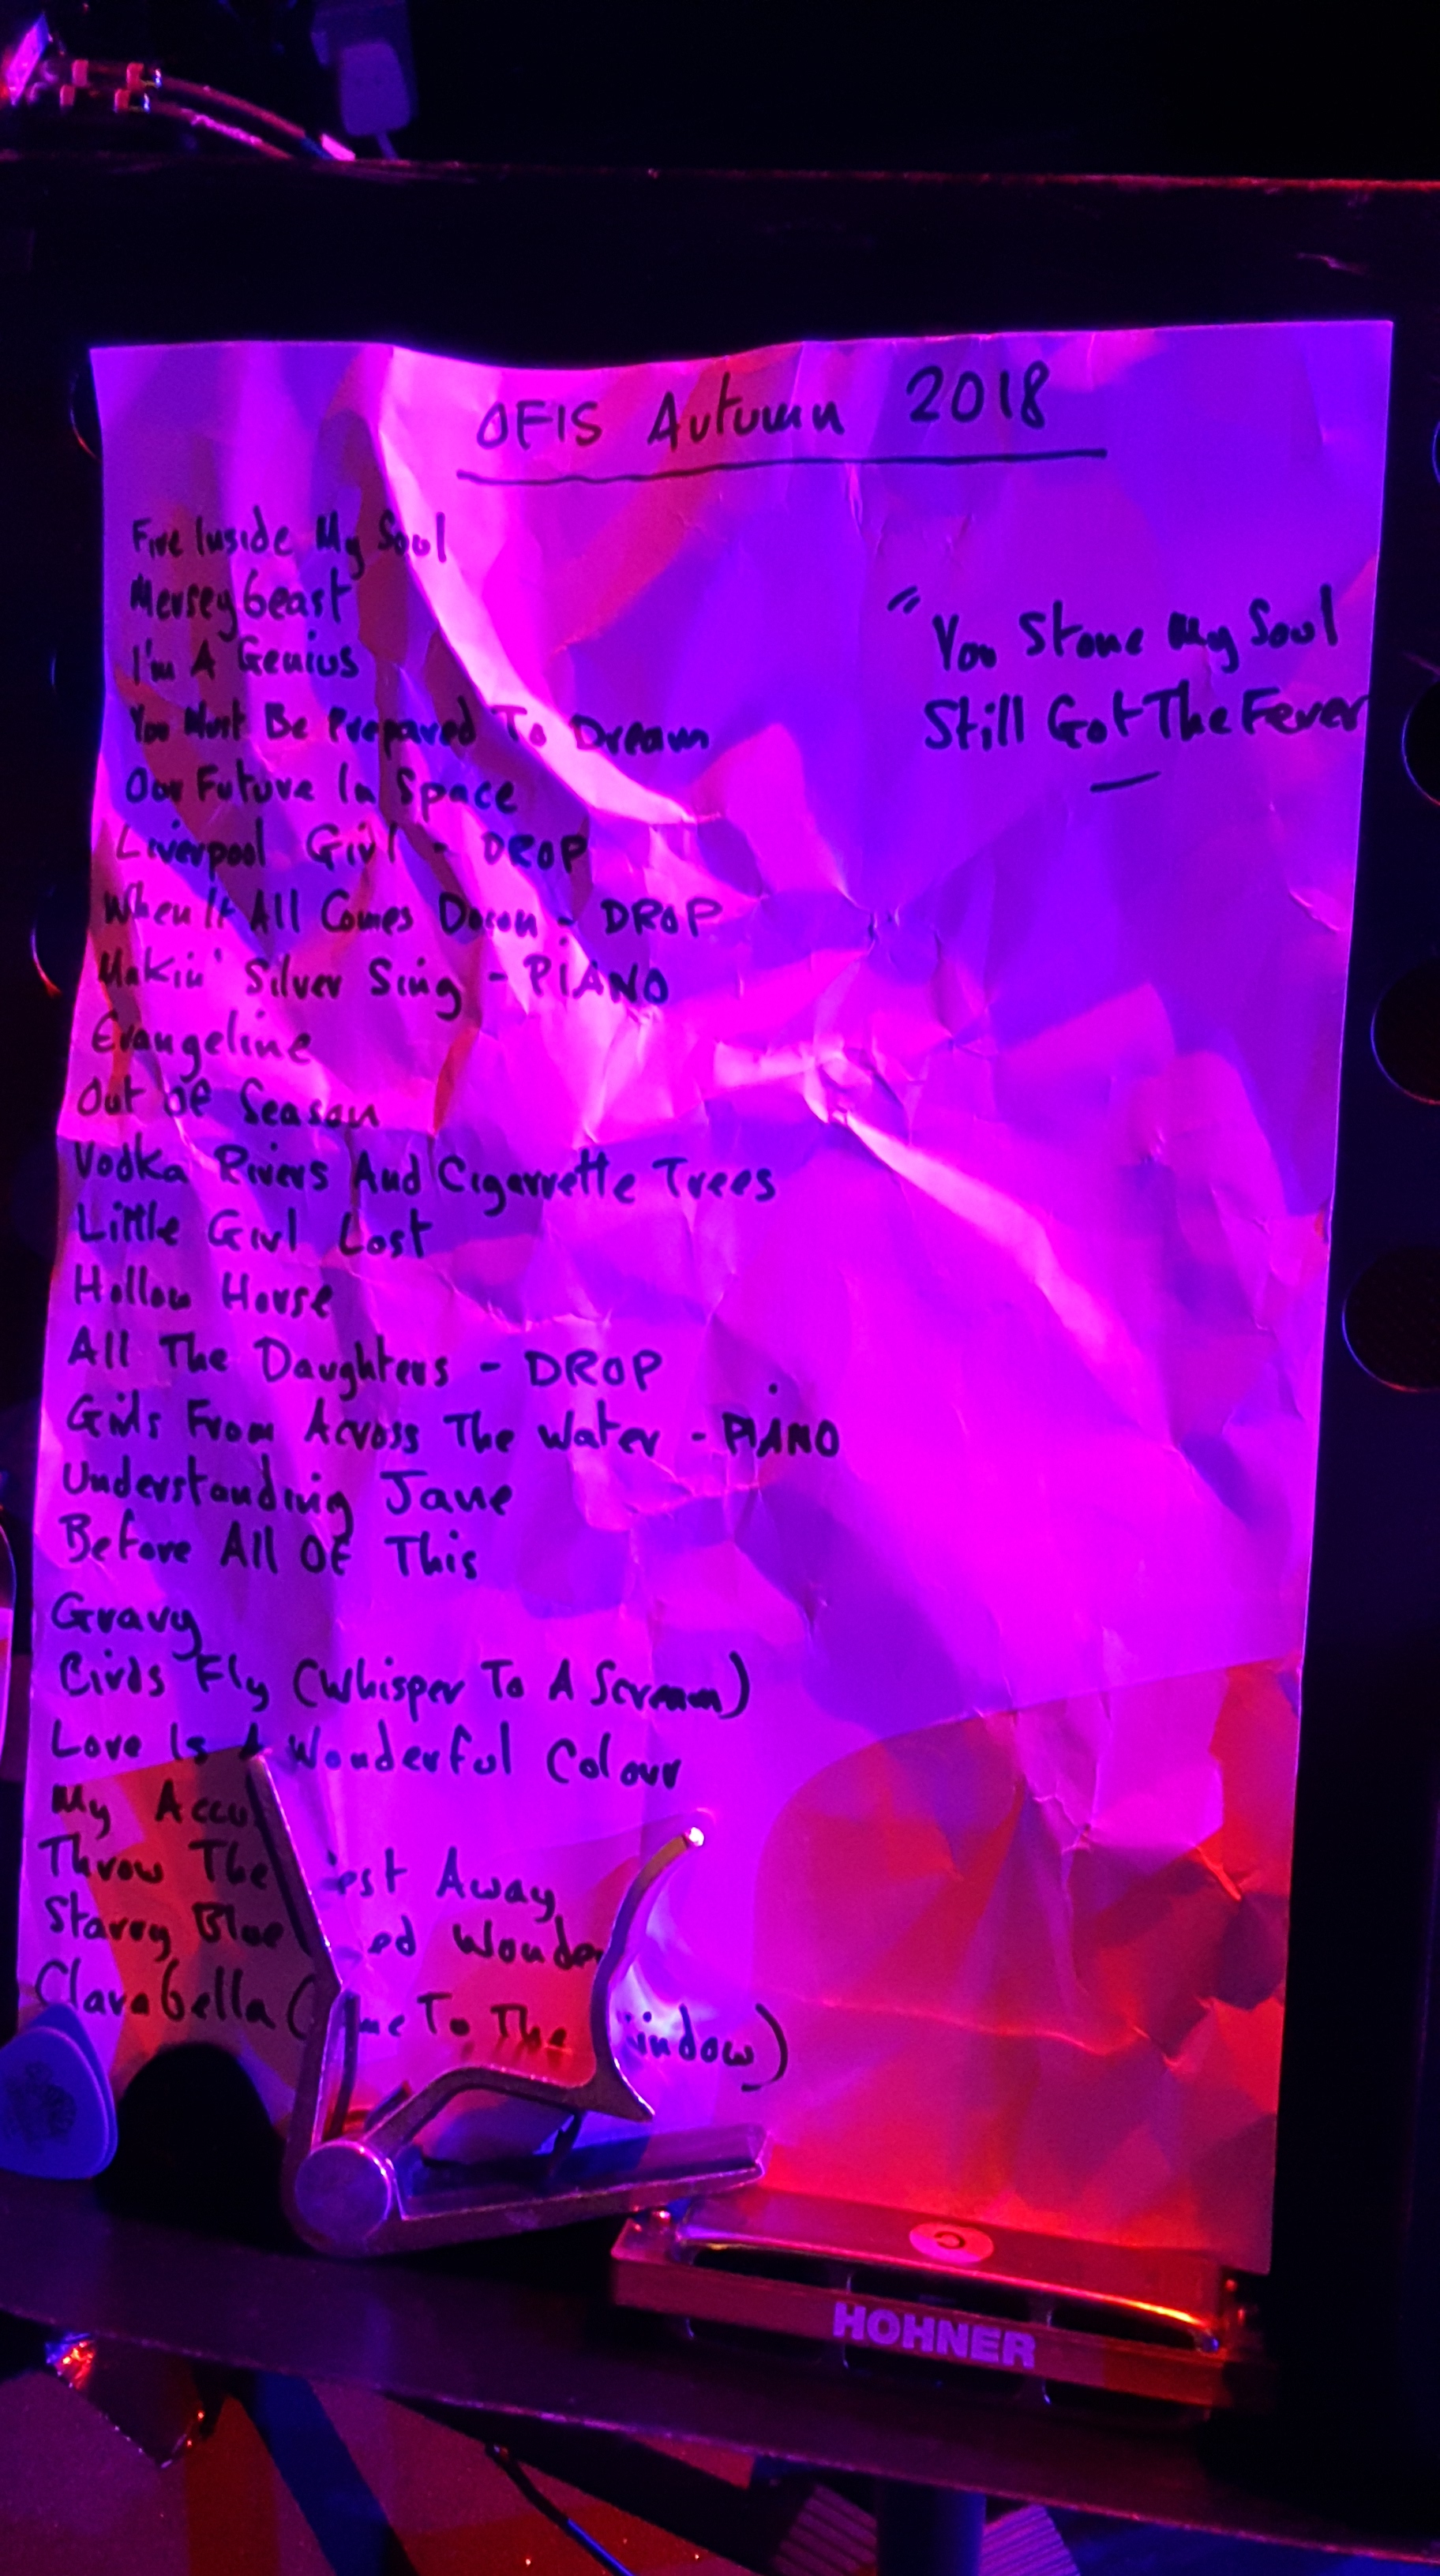 OFIS Autumn 2018
Fire Inside My Soul
Merseybeast
I'm A Genius
You Must Be Prepared To Dream
Our Future In Space
Liverpool Girl - DROP
When It All Comes Down - DROP
Makin' Silver Sing - PIANO
Evangeline
Out Of Season
Vodka Rivers And Cigarrette Trees
Little Girl Lost
Hollow Horse
All The Daughters - DROP
Girls From Across The Water - PIANO
Understanding Jane
Before All Of This
Gravy
Birds Fly (Whisper To A Scream)
Love Is A Wonderful Colour
My
Throw The Away
Starry Blue Wonder
Clarabella ( To The window)
" You Stone My Soul
Still Got The Fever
C
HOHNER